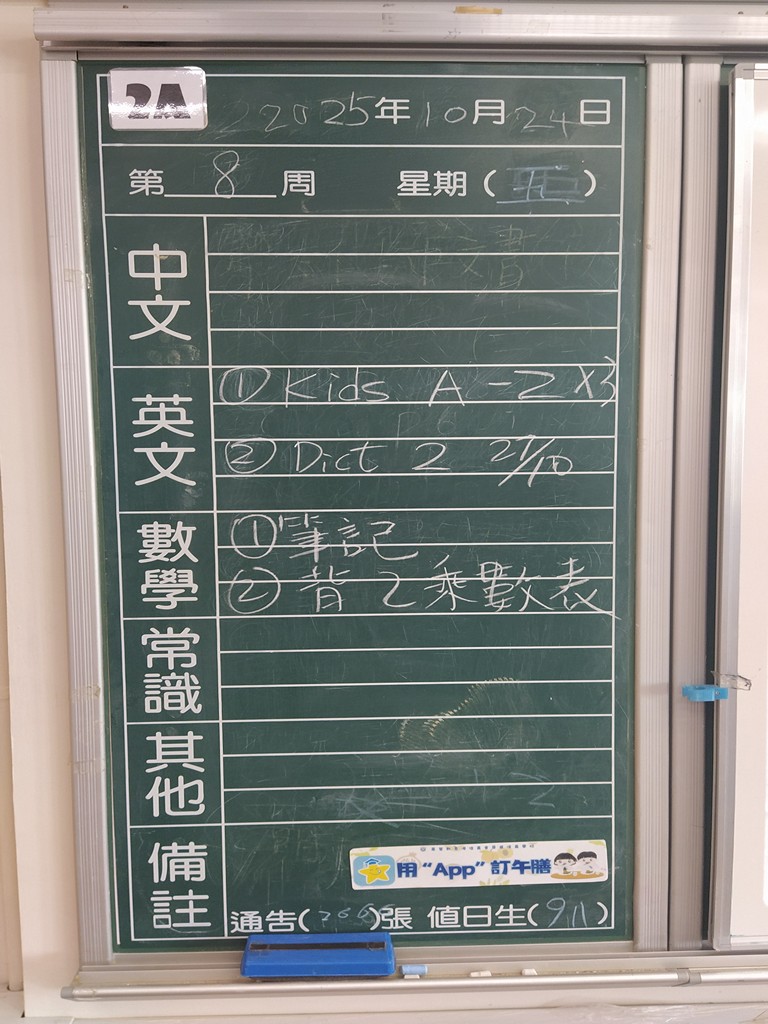 2A
2025年10月24日
第8周 星期(五)
中文
英文
① Kids A-Z x3
② Dict 2 27/10
數學
① 筆記
② 背 2 乘數表
常識
其他
備註
用“App”訂午膳
通告( )張 值日生(9,11)